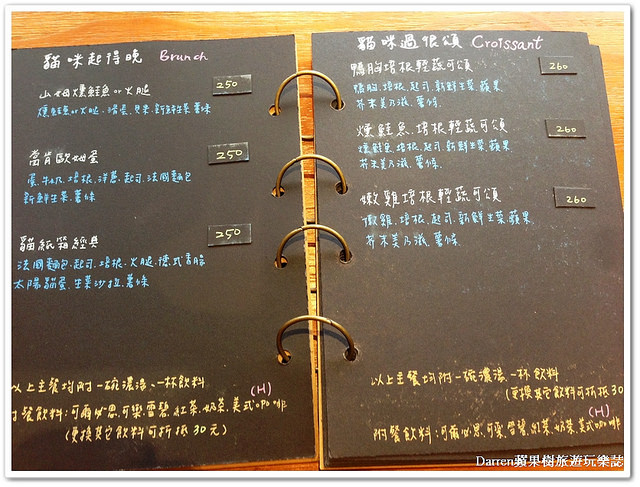 貓咪起得晚 Brunch
山姆燻鮭魚or火腿 250
燻鮭魚or火腿.滑蛋.貝果.新鮮生菜.薯條
當肯歐姆蛋 250
蛋.牛奶.培根.洋蔥.起司.法國麵包
新鮮生菜.薯條
貓紙箱經典 250
法國麵包.起司.培根.火腿.德式香腸
太陽貓蛋.生菜沙拉.薯條
以上主餐均附一碗濃湯、一杯飲料
附餐飲料:可爾必思.可樂.雪碧.紅茶.奶茶.美式咖啡(H)
(更換其它飲料可折抵30元)
貓咪過很頌 Croissant
鴨胸培根輕蔬可頌 260
鴨胸.培根.起司.新鮮生菜.蘋果
芥末美乃滋.薯條
燻鮭魚.培根輕蔬可頌 260
燻鮭魚.培根.起司.新鮮生菜.蘋果
芥末美乃滋.薯條
嫩雞培根輕蔬可頌 260
嫩雞.培根.起司.新鮮生菜.蘋果
芥末美乃滋.薯條
以上主餐均附一碗濃湯、一杯飲料
(更換其它飲料可折抵30
附餐飲料:可爾必思.可樂.雪碧.紅茶.奶茶.美式咖啡(H)
Darren蘋果樹旅遊玩樂誌